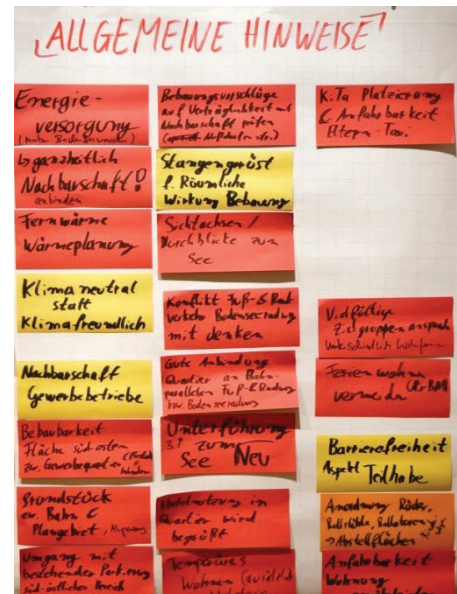 "ALLGEMEINE HINWEISE"
Energie-
versorgung
↳ ganzheitlich
Nachbarschaft!
anbinden
Fernwärme
Wärmeplanung
Klimaneutral
statt
Klimafreundlich
Nachbarschaft
Gewerbebetriebe
Bebaubarkeit
Fläche süd-osten
zw. Gewerbe
Grundstück
zw. Bahn &
Plangebiet
Umgang mit
bestehender Parkierung
süd-östlicher Bereich
Bebauungsvorschläge
auf Verträglichkeit mit
Nachbarschaft prüfen
Stangengerüst
f. Räumliche
Wirkung Bebauung
Sichtachsen /
Durchblicke zum
See
Konflikt Fuß- & Rad
verkehr Bodenseeradweg
mit denken
Gute Anbindung
Quartier an Bahn-
parallelen Fuß- & Radweg
bzw. Bodenseeradweg
Unterführung
zum
See Neu
Hotelnutzung im
Quartier wird
begrüßt
Temporäres
Wohnen
KiTa Platzierung
& Anfahrbarkeit
Eltern-Taxi
Vielfältige
Zielgruppen
Ferienwohnen
vermeiden
Barrierefreiheit
Aspekt Teilhabe
Anordnung Räder,
Rollstühle, Rollatoren
→ Abstellflächen
Anfahrbarkeit
Wohnung